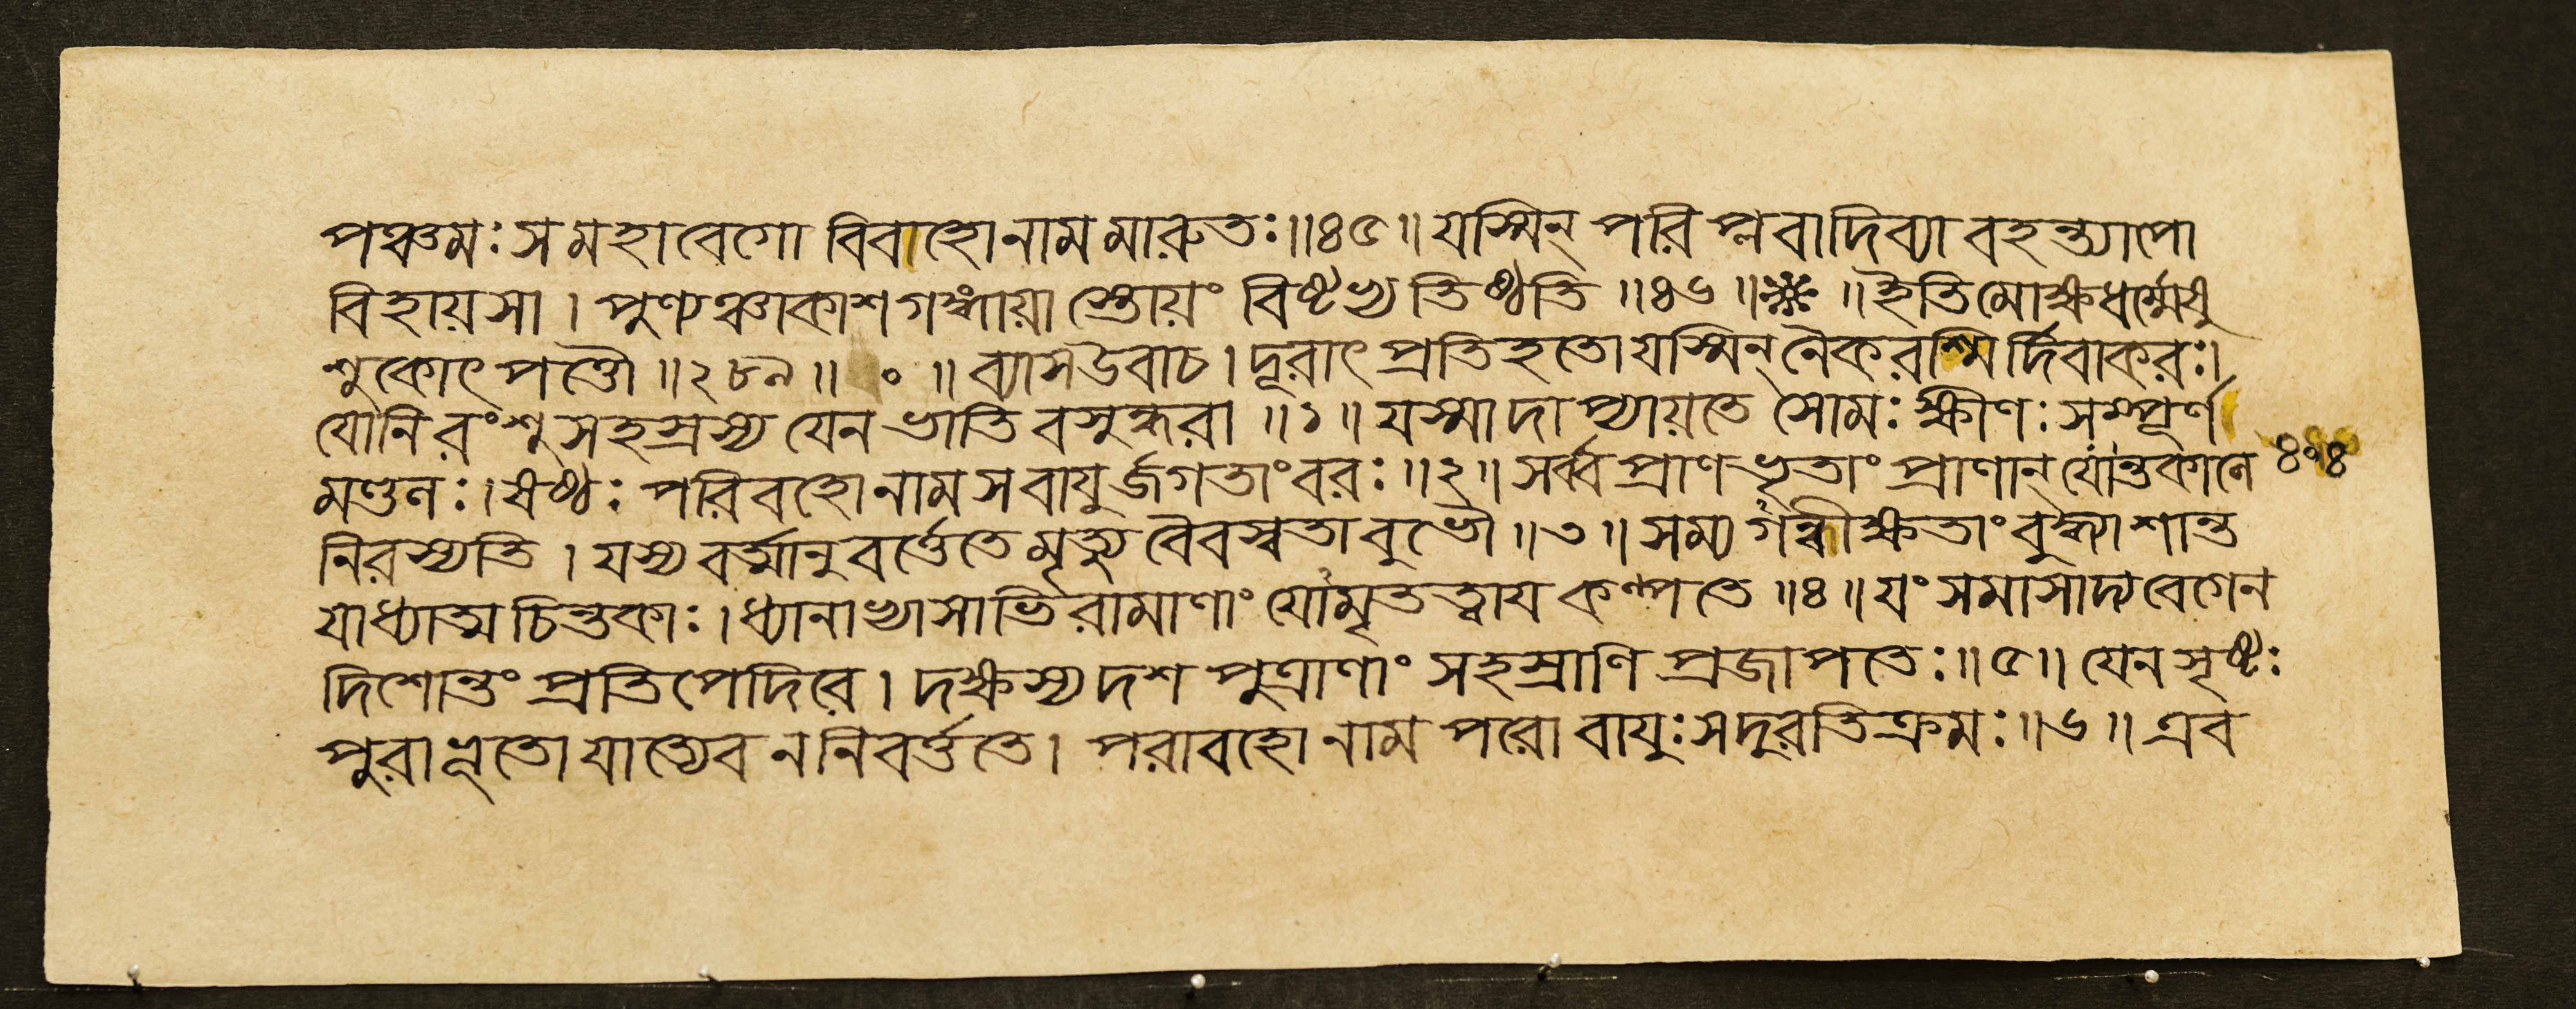 পঞ্চমঃ স মহাবেগো বিবাহো নাম মারুতঃ ॥৪৫॥ যস্মিন্ পরিপ্লবা দিব্যা বহন্ত্যাপো
বিহায়সা । পুণ্যঞ্চাকাশগঙ্গায়াস্তোয়ং বিষ্টভ্য তিষ্ঠতি ॥৪৬॥ ※ ॥ ইতি মোক্ষধর্ম্মেষু
শুকোৎপত্তৌ ॥২৮৯॥ ० ॥ ব্যাস উবাচ । দূরাৎ প্রতিহতো যস্মিন্ নৈকরশ্মির্দিবাকরঃ।
যোনিরংশুসহস্রস্য যেন ভাতি বসুন্ধরা ॥১॥ যস্মাদাপ্যায়তে সোমঃ ক্ষীণঃ সম্পূর্ণ
মণ্ডলঃ । ষষ্ঠঃ পরিবহো নাম স বাযুর্জগতাং বরঃ ॥২॥ সর্ব্বপ্রাণভৃতাং প্রাণান্ যোন্তকালে ৪০৪
নিরস্যতি । যস্য বর্ত্মানুবর্ত্তেতে মৃত্যুবৈবস্বতাবুভৌ ॥৩॥ সম্যগন্বীক্ষতাং বুদ্ধ্যা শান্ত
যাধ্যাত্মচিন্তকাঃ । ধ্যানাভ্যাসাভিরামাণাং যোমৃতত্বায কল্পতে ॥৪॥ যং সমাসাদ্য বেগেন
দিশোন্তং প্রতিপেদিরে । দক্ষস্য দশ পুত্রাণাং সহস্রাণি প্রজাপতেঃ ॥৫॥ যেন সৃষ্টঃ
পুরাভূতো যাত্যেব ন নিবর্ত্ততে । পরাবহো নাম পরো বাযুঃ স দুরতিক্রমঃ ॥৬॥ এব